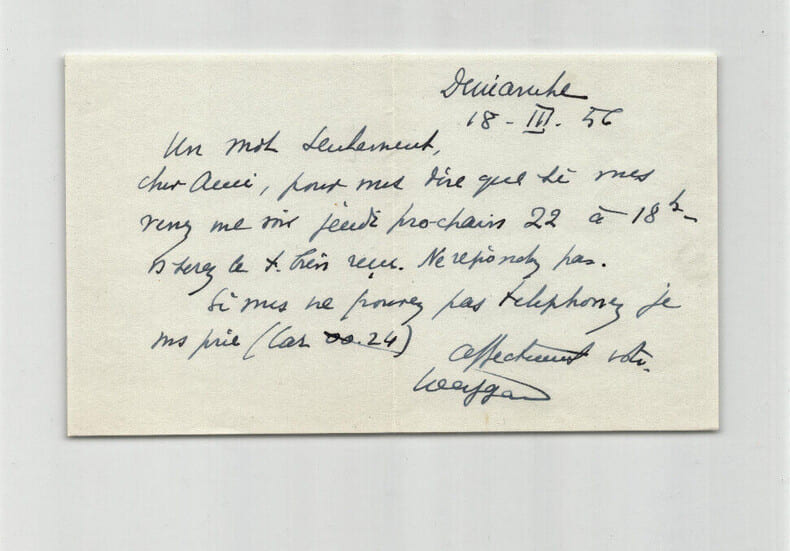 Dimanche
18 - III. 56
Un mot seulement,
cher Ami, pour vous dire que si vous
venez me voir jeudi prochain 22 à 18h -
serez le t. bien reçu. Ne répondez pas.
Si vous ne pouvez pas telephonez je
vs prie (Car 00.24)
Affectueust votre
Weygand